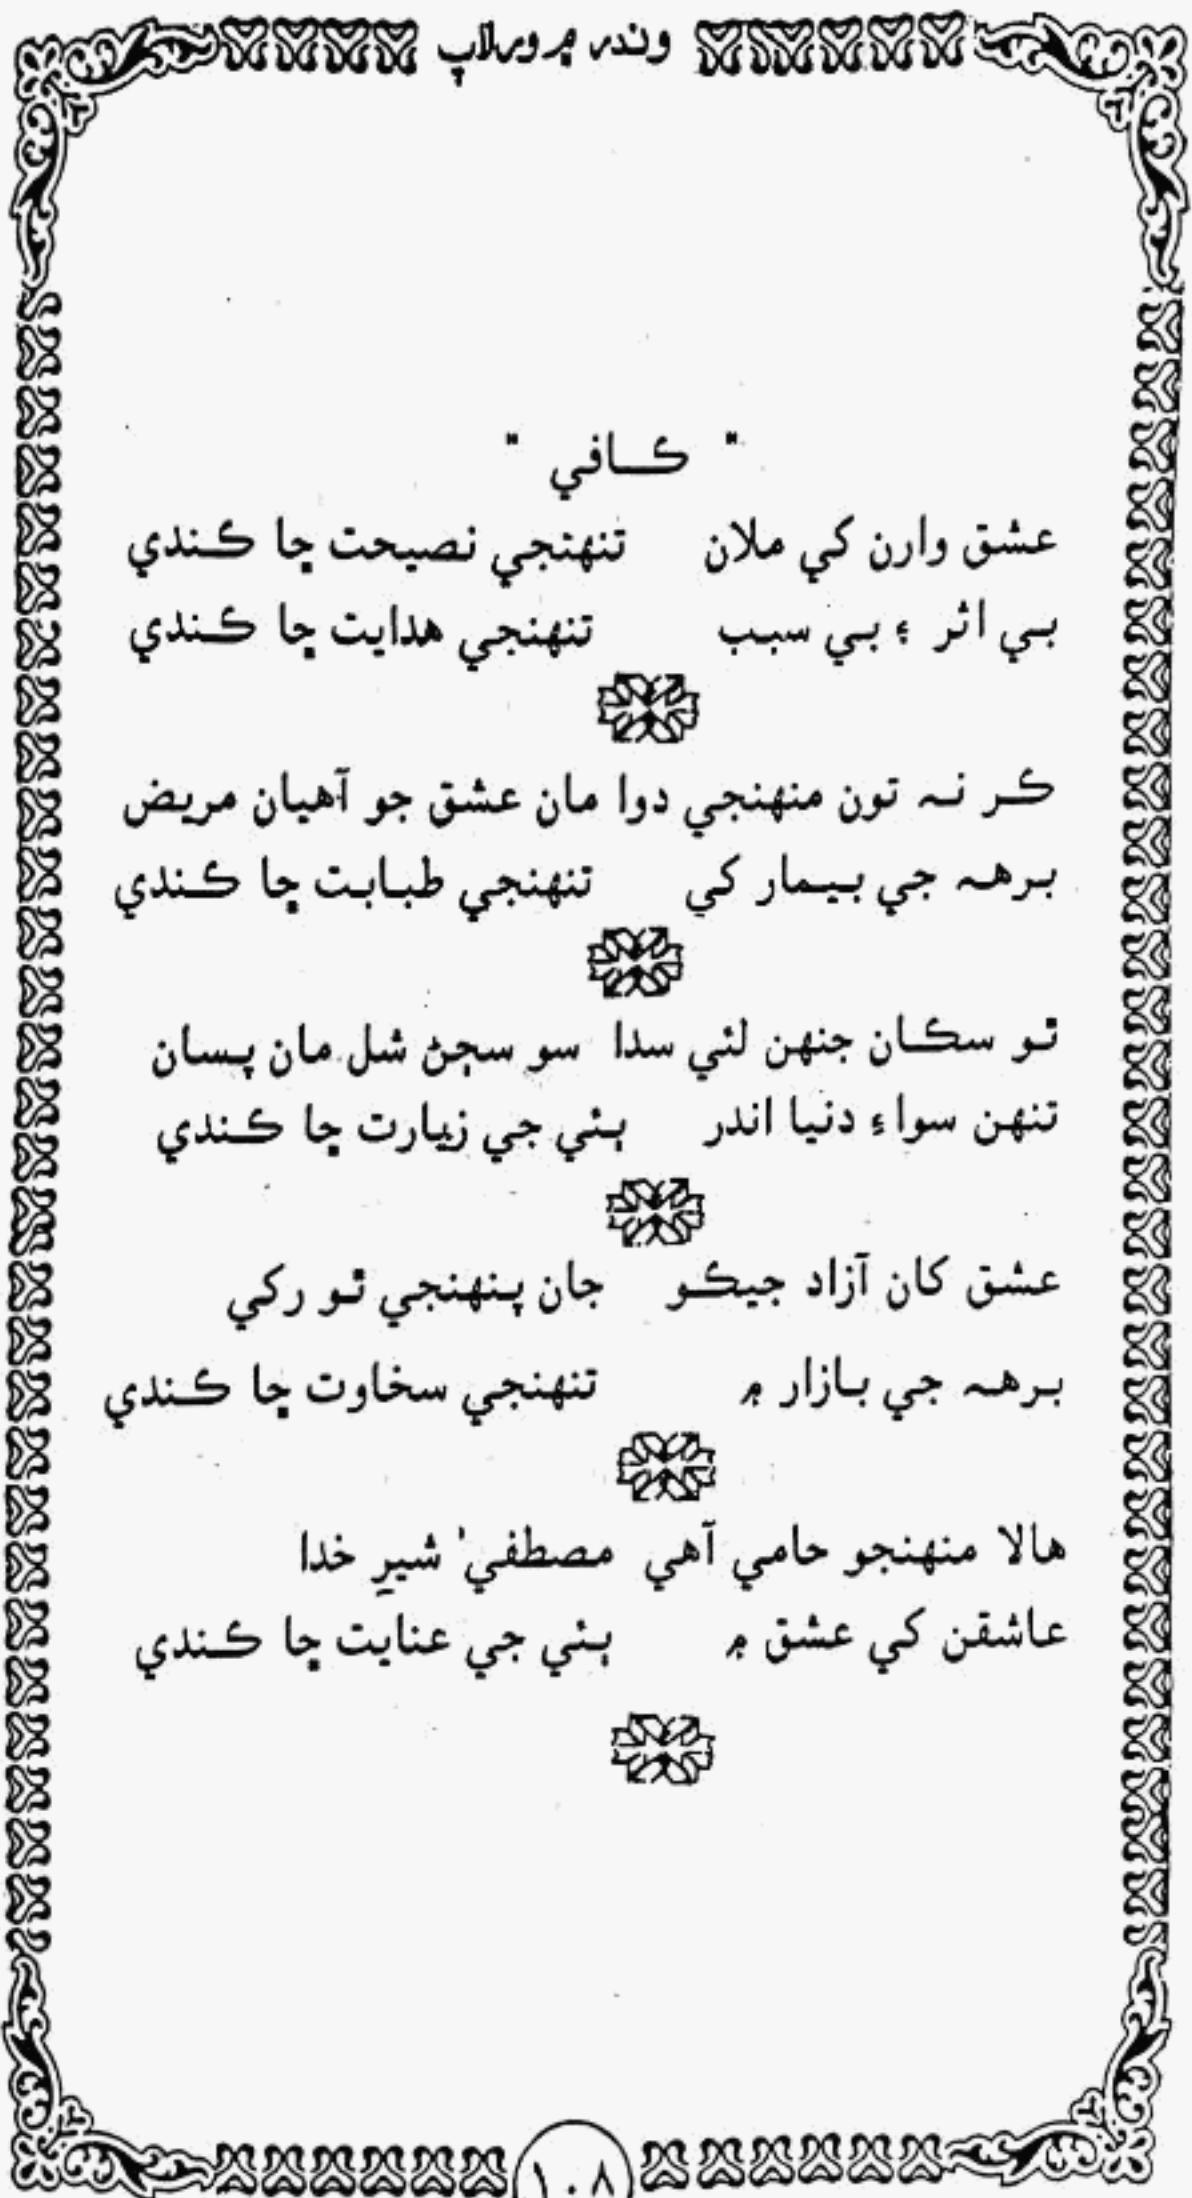 وندر ۾ ورلاپ
" ڪافي "
عشق وارن کي ملان تنهنجي نصيحت ڇا ڪندي
بي اثر ۽ بي سبب تنهنجي هدايت ڇا ڪندي
ڪر نہ تون منهنجي دوا مان عشق جو آهيان مريض
برهہ جي بيمار کي تنهنجي طبابت ڇا ڪندي
ٿو سڪان جنهن لئي سدا سو سڄڻ شل مان پسان
تنهن سواءِ دنيا اندر ٻئي جي زيارت ڇا ڪندي
عشق کان آزاد جيڪو جان پنهنجي ٿو رکي
برهہ جي بازار ۾ تنهنجي سخاوت ڇا ڪندي
هالا منهنجو حامي آهي مصطفيٰ شيرِ خدا
عاشقن کي عشق ۾ ٻئي جي عنايت ڇا ڪندي
١٠٨